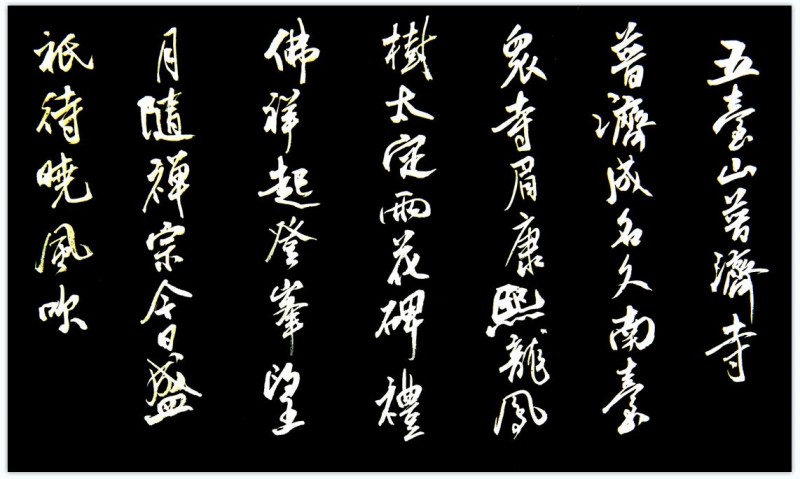 五臺山普濟寺
普濟成名久南臺
眾寺眉康熙龍鳳
樹太定雨花碑禮
佛祥起登峯望
月隨禪宗今日盛
祇待曉風吹